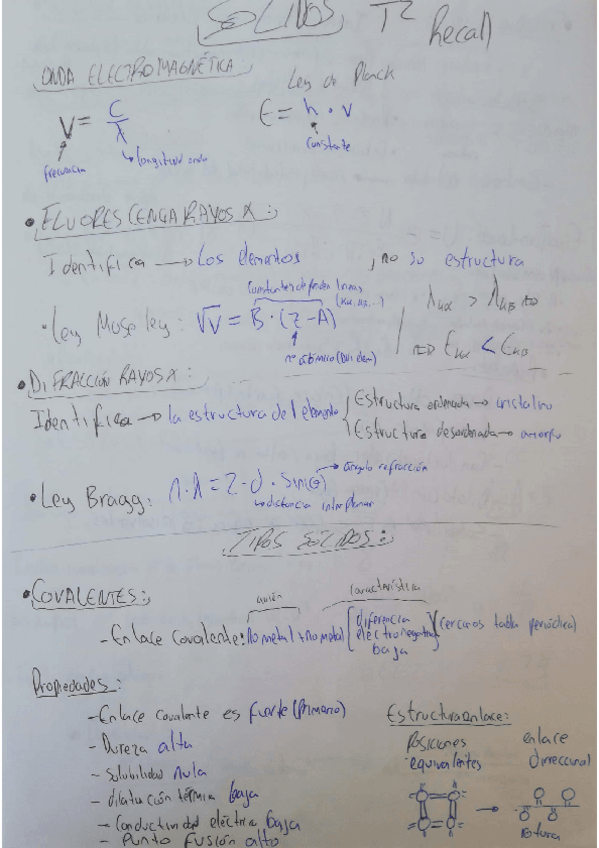 SOLIDOS, T2 Recall
ONDA ELECTROMAGNÉTICA:
Ley de Planck
V = C / λ
E = h · v
frecuencia
longitud onda
constante
• FLUORESCENCIA RAYOS X:
Identifica → Los elementos, no su estructura
Constantes dependen líneas (Kα, Kβ, ...)
• Ley Moseley: √V = B · (Z - A)
nº atómico (del elem)
λKα > λKβ ⇒
⇒ EKα < EKβ
• DIFRACCIÓN RAYOS X:
Identifica → la estructura del elemento
Estructura ordenada → cristalino
Estructura desordenada → amorfo
• Ley Bragg: n · λ = 2 · d · sin(θ)
→ ángulo refracción
↳ distancia interplanar
TIPOS SÓLIDOS:
• COVALENTES:
unión
característica
- Enlace covalente: No metal + no metal (diferencia electronegativ baja) (cercanos tabla periódica)
Propiedades:
- Enlace covalente es fuerte (primario)
- Dureza alta
- solubilidad nula
- dilatación térmica baja
- conductividad eléctrica baja
- Punto fusión alto
Estructura enlace:
Posiciones equivalentes
enlace direccional
rotura